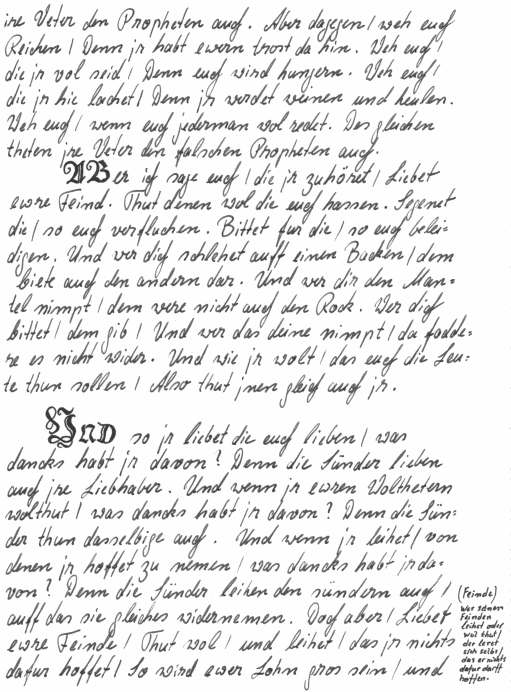 ire Veter den Propheten auch. Aber dagegen / weh euch
Reichen / Denn jr habt ewern trost da hin. Weh euch /
die jr vol seid / Denn euch wird hungern. Veh euch /
die jr hie lachet / Denn jr werdet weinen und heulen.
Weh euch / wenn euch jederman wol redet. Des gleichen
theten jre Veter den falschen Propheten auch.
ABer ich sage euch / die jr zuhöret / Liebet
ewre Feind. Thut denen wol die euch hassen. Segenet
die / so euch verfluchen. Bittet fur die / so euch belei-
digen. Und wer dich schlehet auff einen Backen / dem
biete auch den andern dar. Und wer dir den Man=
tel nimpt / dem were nicht auch den Rock. Wer dich
bittet / dem gib / Und wer das deine nimpt / da fodde=
re es nicht wider. Und wie jr wolt / das euch die Leu=
te thun sollen / Also thut jnen gleich auch jr.
UND so jr liebet die euch lieben / was
dancks habt jr davon? Denn die Sünder lieben
auch jre Liebhaber. Und wenn jr ewren Wolthetern
wolthut / was dancks habt jr davon? Denn die Sün=
der thun dasselbige auch. Und wenn jr leihet / von
denen jr hoffet zu nemen / was dancks habt jr da=
von? Denn die Sünder leihen den sündern auch /
auff das sie gleiches widernemen. Doch aber / Liebet
ewre Feinde / Thut wol / und leihet / das jr nichts
dafur hoffet / So wird ewer Lohn gros sein / und
(Feinde)
Wer seinen
Feinden
leihet oder
wol thut /
der leret
sich selbs /
das er nichts
dafur darff
hoffen.